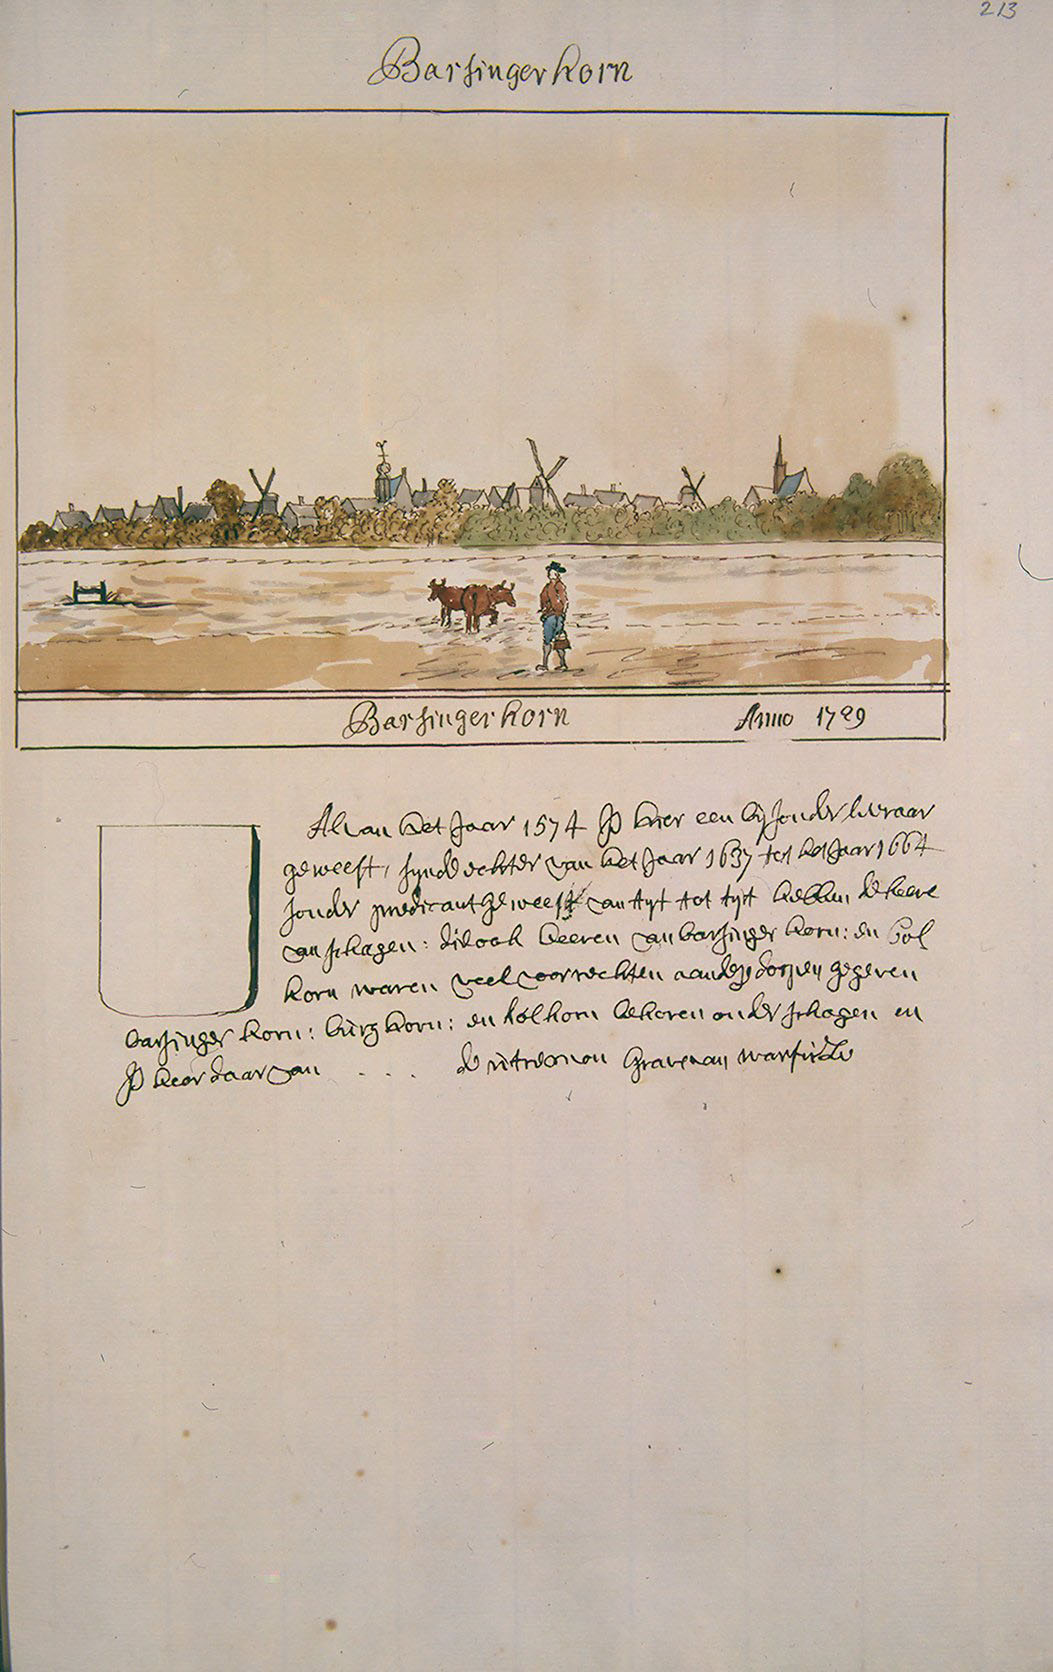 213
Barsingerkorn
Barsingerkorn Anno 1729
Al van het Jaar 1574 Is hier een bijsonder leeraar
geweest, synde echter van het Jaar 1637 tot het Jaar 1664
sonder predicant geweest van tyt tot tyt hebben de heere
van schagen: die ook heeren van barsinger korn: en kol
korn waren veel voorrechten aan dese dorpen gegeven
barsinger korn: burg korn: en kolhorn behoren onder schagen en
Is heer daar van . . . . de grave van warfusée